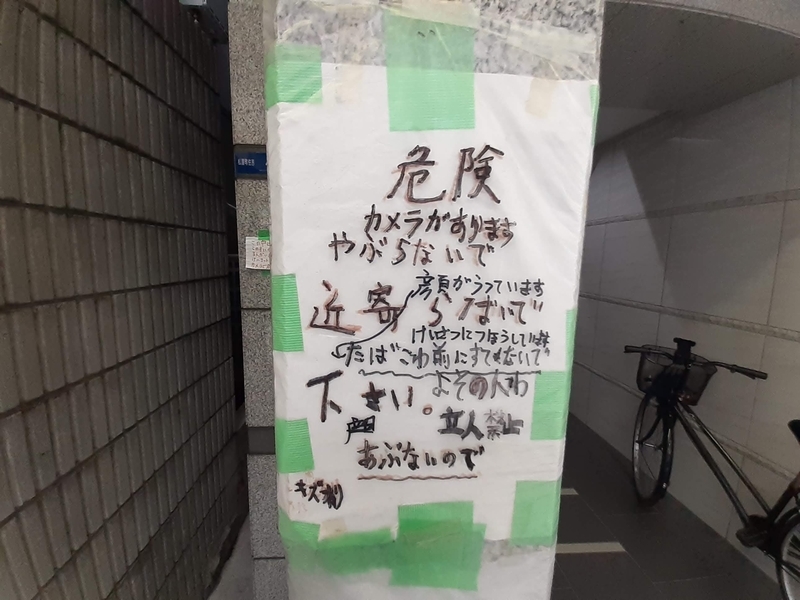 危険
カメラがあります
やぶらないで
顔がうつっています
近寄らないで
けいさつにつうほうしています
たばこわ前にすてないで
下さい。よその人わ
立入禁止
あぶないので
キズ有り